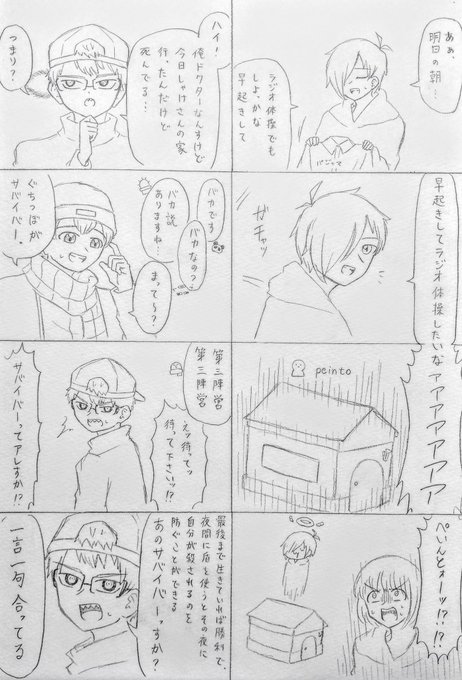 あぁ、
明日の朝…
ラジオ体操でも
しよかな
早起きして
パジャマ
早起きしてラジオ体操したいなアアアアアアア
ガチャッ
peinto
ぺいんとォーッ!?!?
ハイ!
俺ドクターなんすけど
今日しゃけさんの家
行ったんだけど
死んでる…
つまり?
バカです
バカなのっ?
バカ説
ありますね…
まってぇ?
ぐちつぼが
サバイバー。
第三陣営
第三陣営
えッ待ってッ
待って下さいッ!?
サバイバーってアレすか!?
最後まで生きていれば勝利で、
夜間に盾を使うとその夜に
自分が殺されるのを
防ぐことができる
あのサバイバーっすか?
一言一句合ってる